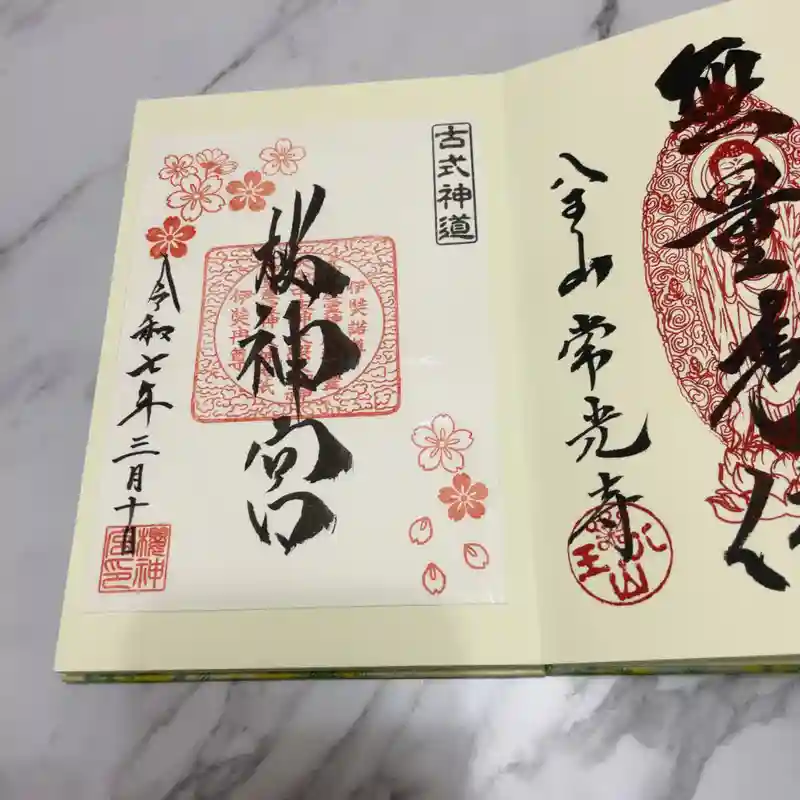 無量寿仏
八王山常光寺
八王山
古式神道
伊弉諾尊
櫻神宮
伊弉冉尊
令和七年三月十日
櫻神宮印